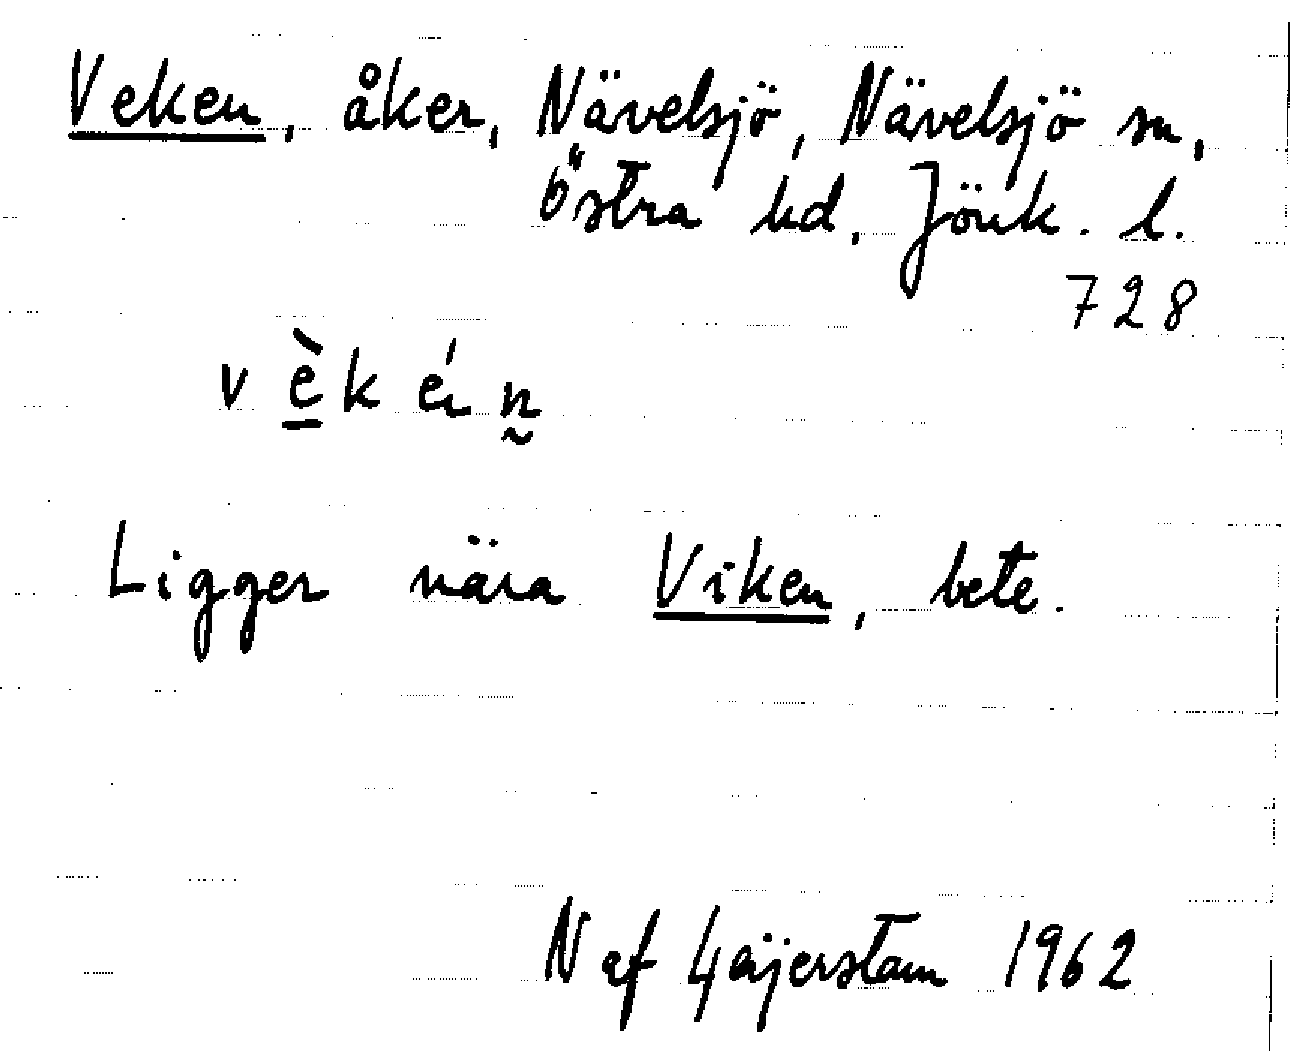 Veken, åker, Nävelsjö, Nävelsjö sn,
Östra hd, Jönk. l.
728
v è k é n
Ligger nära Viken, bete.
N af Geijerstam 1962